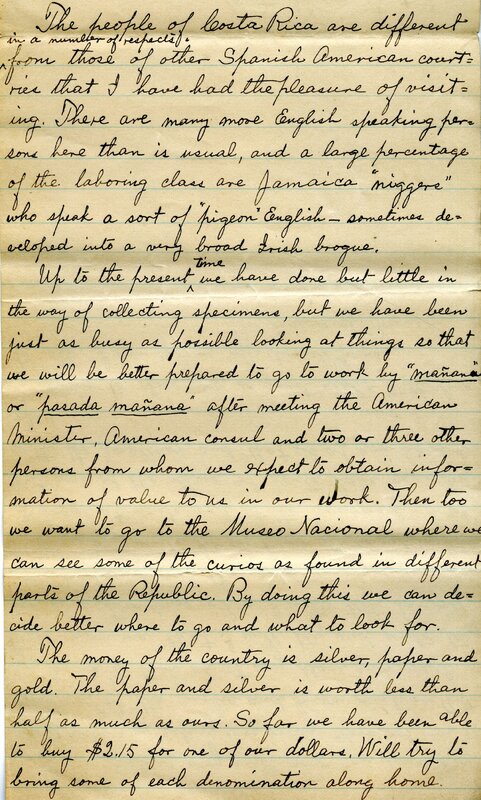 The people of Costa Rica are different
in a number of respects,
from those of other Spanish American count=
ries that I have had the pleasure of visit=
ing. There are many more English speaking per=
sons here than is usual, and a large percentage
of the laboring class are Jamaica "niggers"
who speak a sort of "pigeon" English — sometimes de=
veloped into a very broad Irish brogue.
Up to the present time we have done but little in
the way of collecting specimens, but we have been
just as busy as possible looking at things so that
we will be better prepared to go to work by "mañana"
or "pasada mañana" after meeting the American
Minister, American consul and two or three other
persons from whom we expect to obtain infor=
mation of value to us in our work. Then too
we want to go to the Museo Nacional where we
can see some of the curios as found in different
parts of the Republic. By doing this we can de=
cide better where to go and what to look for.
The money of the country is silver, paper and
gold. The paper and silver is worth less than
half as much as ours. So far we have been able
to buy $2.15 for one of our dollars. Will try to
bring some of each denomination along home.